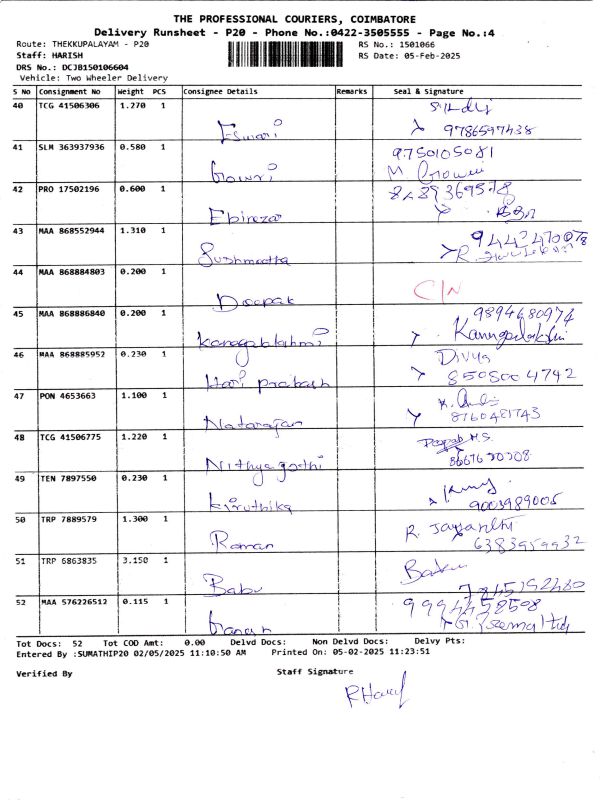 THE PROFESSIONAL COURIERS, COIMBATORE
Delivery Runsheet - P20 - Phone No.:0422-3505555 - Page No.:4
Route: THEKKUPALAYAM - P20 RS No.: 1501066
Staff: HARISH RS Date: 05-Feb-2025
DRS No.: DCJB150106604
Vehicle: Two Wheeler Delivery
S No Consignment No Weight PCS Consignee Details Remarks Seal & Signature
40 TCG 41506306 1.270 1
Eswari 9786597438
41 SLM 363937936 0.580 1 9750105081
Gowri M Gowri
42 PRO 17502196 0.600 1
Ebinezar
43 MAA 868552944 1.310 1
Sushmeetha R.
44 MAA 868884803 0.200 1
Deepak C/N
45 MAA 868886840 0.200 1 9894680974
Kanagalakshmi
46 MAA 868885952 0.230 1 Divya
Hari prakash 8508004742
47 PON 4653663 1.100 1
Natarajan 8760481743
48 TCG 41506775 1.220 1 Deepak M.S.
Nithyagothi
49 TEN 7897550 0.230 1
Kiruthika 9003989005
50 TRP 7889579 1.300 1 R. Jayanthi
Raman 6383959932
51 TRP 6863835 3.150 1 Babu
Babu
52 MAA 576226512 0.115 1 9994458508
Ganesh
Tot Docs: 52 Tot COD Amt: 0.00 Delvd Docs: Non Delvd Docs: Delvy Pts:
Entered By :SUMATHIP20 02/05/2025 11:10:50 AM Printed On: 05-02-2025 11:23:51
Verified By Staff Signature